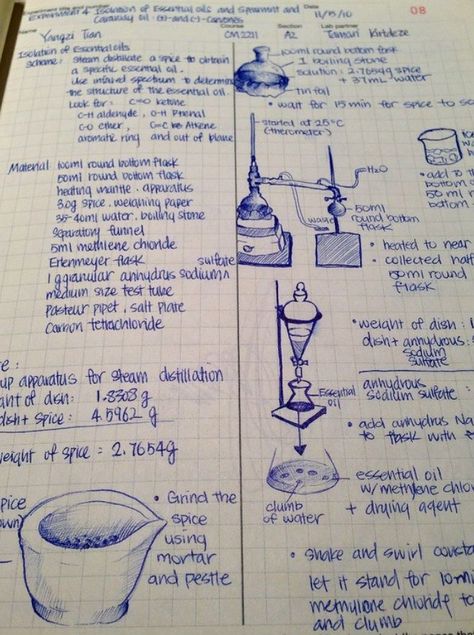 Experiment 4 Isolation of Essential oils and Spearmint and
Caraway oil: (+)-and(-)-Carvones
Date
11/15/10
08
Name
Yangzi Tian
Course
CM2211
Section
A2
Lab partner
Tamari Kirtdeze
Isolation of Essential oils
Scheme: Steam distillate a spice to obtain
a specific essential oil.
Use infrared spectrum to determine
the structure of the essential oil.
Look for: C=O ketone
C-H aldehyde, O-H Phenol
C-O ether, C=C bs Alkene
aromatic ring and out of plane
Material: 100ml round bottom flask
50ml round bottom flask
heating mantle, apparatus
3.0g spice, weighing paper
35-40ml water, boiling stone
separatory funnel
5ml methlene chloride
Erlenmeyer flask
1g granular anhydrus sodium ^ sulfate
medium size test tube
Pasteur pipet, salt plate
Carbon tetrachloride
up apparatus for steam distillation
ght of dish: 1.8308 g
dish + spice: 4.5962 g
weight of spice = 2.7654g
spice
• Grind the
spice
using
mortar
and pestle
100ml round bottom flask
1 boiling stone
solution: 2.7654g spice
+ 37mL water
tin foil
• wait for 15 min for spice to so
started at 25°C
(therometer)
H₂O
waste
50ml
round bottom
flask
• add to th
bottom
50 ml r
bottom
• heated to near
• collected half
50ml round
flask
• weight of dish: 1
dish + anhydrous:
sodium
sulfate
anhydrous
sodium sulfate =
Essential
oil
• add anhydrus Na
to flask with
essential oil
w/methylene chlor
+ drying agent
clumb
of water
• shake and swirl consta
let it stand for 10mi
methylene chloride to
and clumb